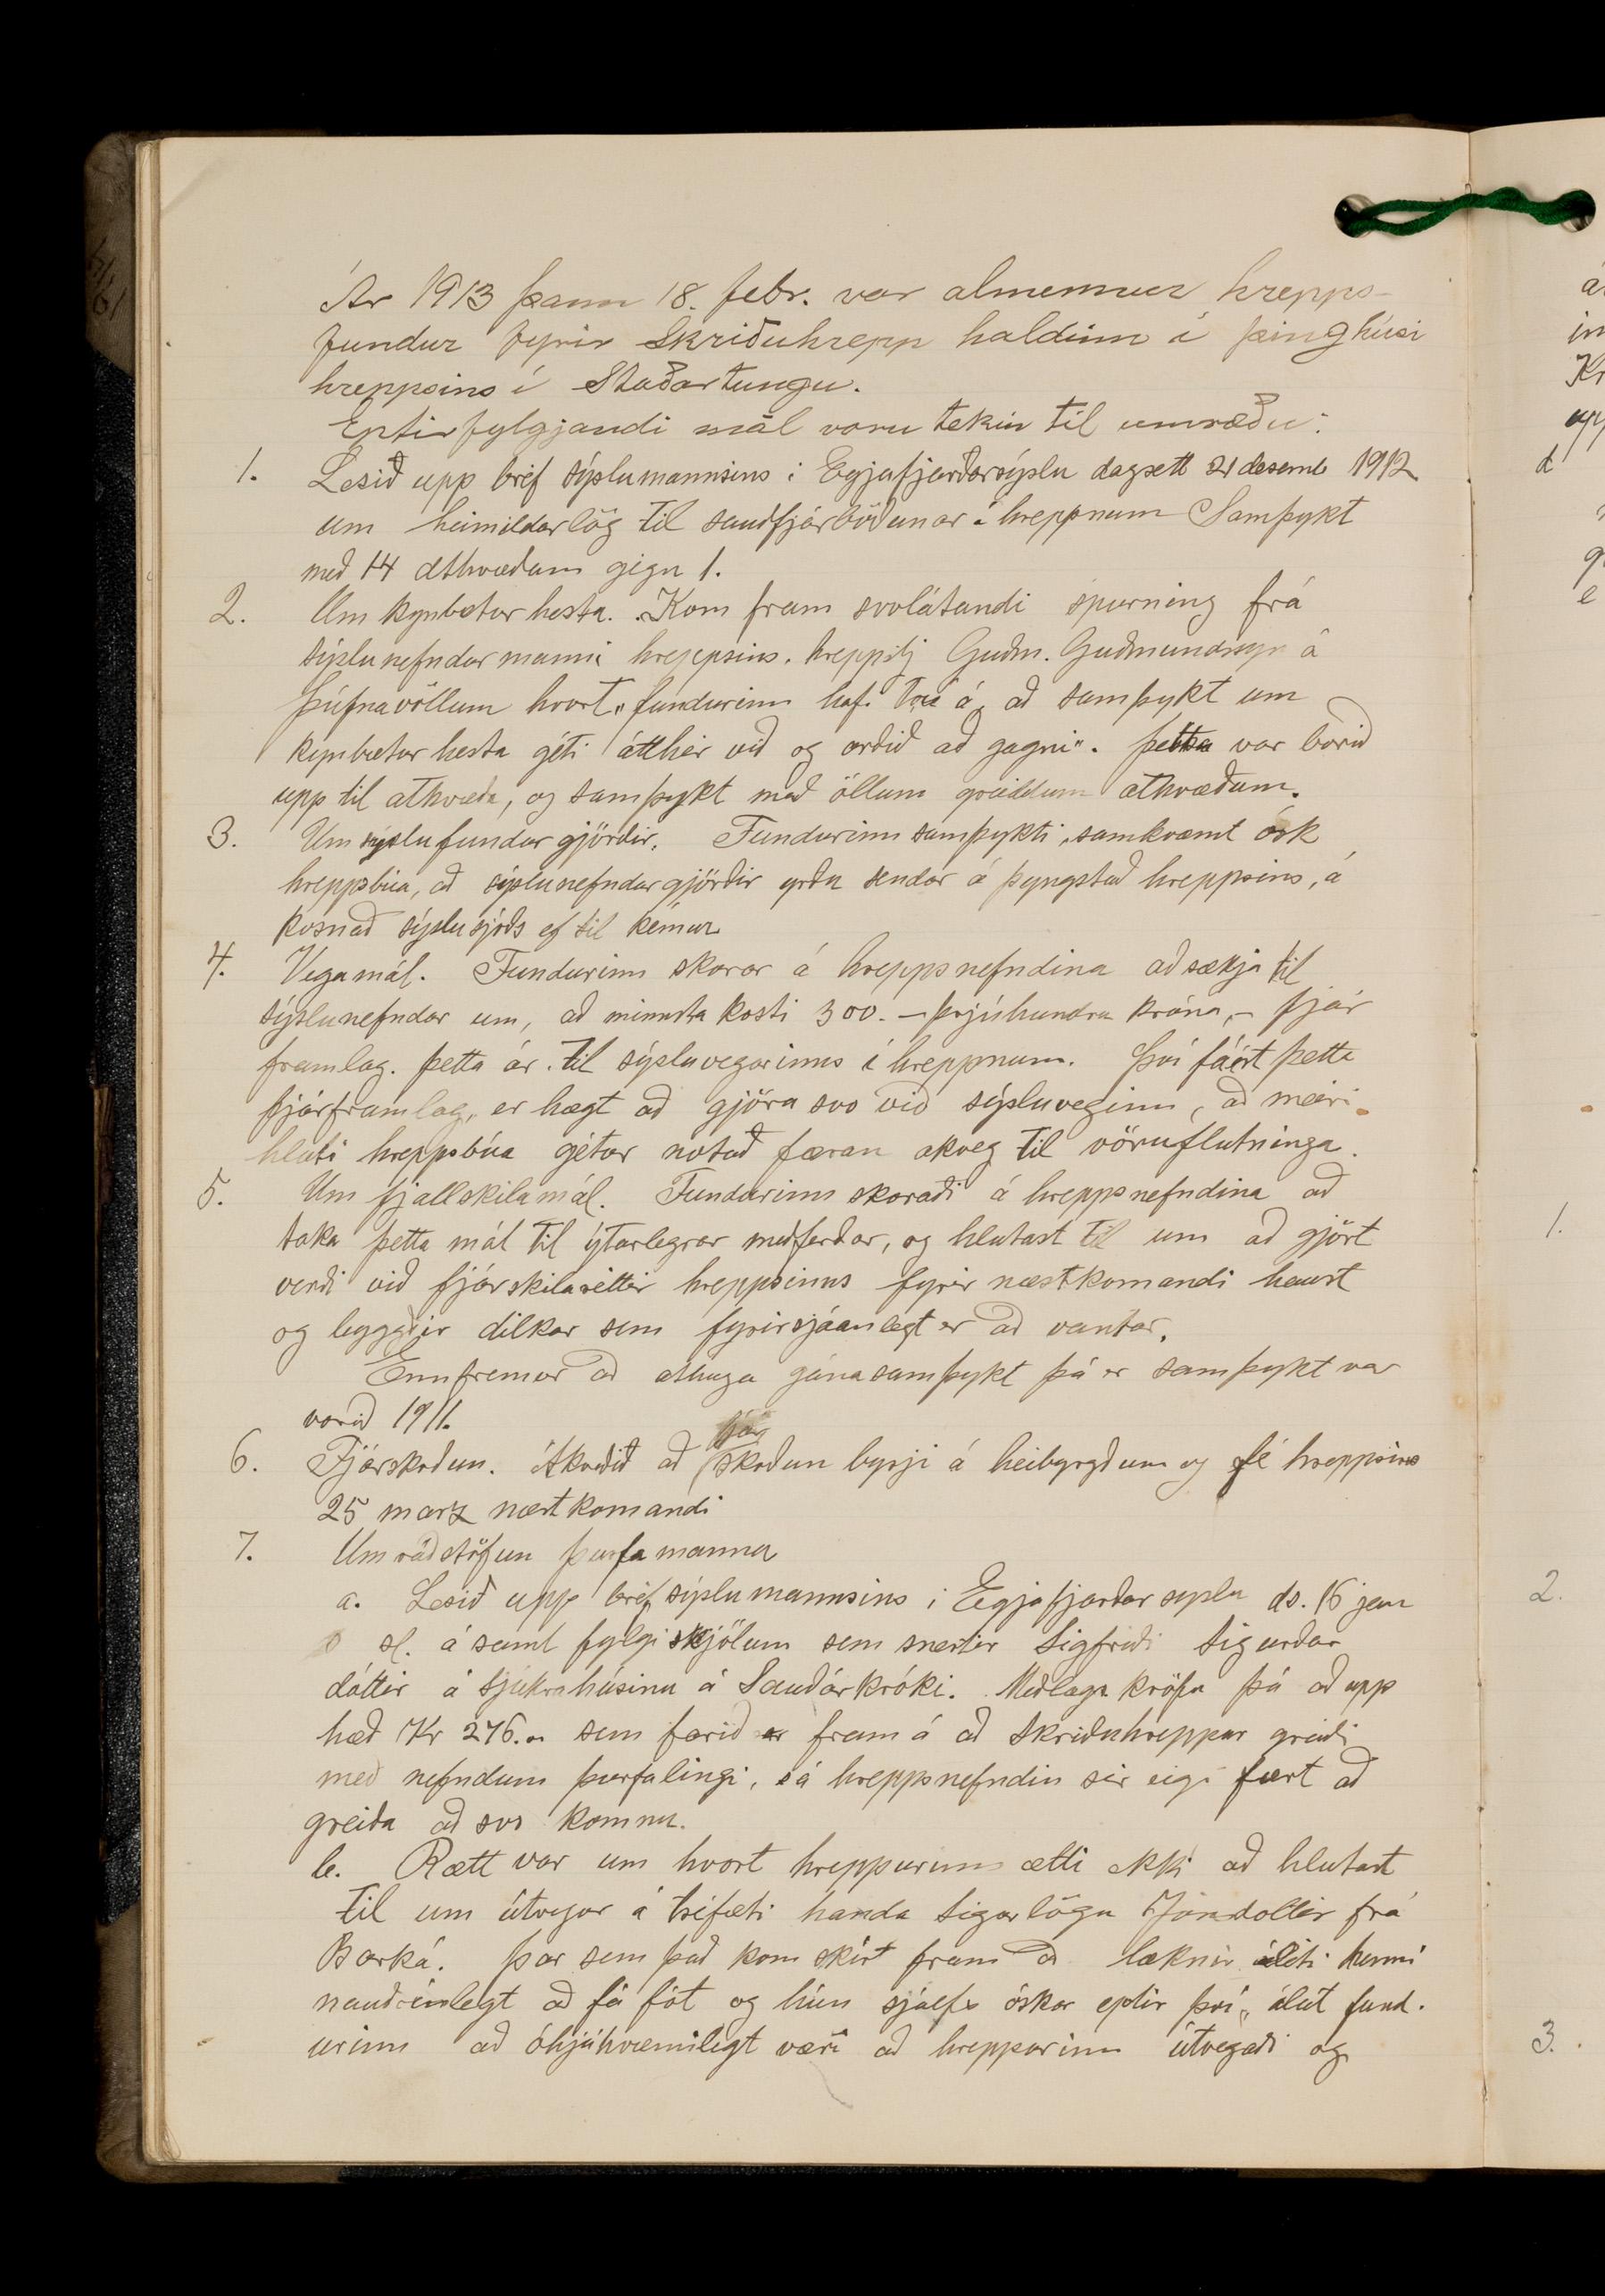 Ár 1913 þann 18. febr. var almennur hrepps-
fundur fyrir Skriðuhrepp haldinn í þinghúsi
hreppsins í Staðartungu.
Eptirfylgjandi mál voru tekin til umræðu:
1. Lesið upp bréf sýslumannsins í Eyjafjarðarsýslu dagsett 21 desemb 1912
um heimildarlög til sauðfjárböðunar í hreppnum Samþykt
með 14 atkvæðum gegn 1.
2. Um kynbætur hesta. Kom fram svolátandi spurning frá
sýslunefndarmanni hreppsins, hreppstj Guðm. Guðmundssyni á
Þúfnavöllum hvort „fundurinn hafi trú á, að samþykt um
kynbætur hesta géti átt hér við og orðið að gagni". Þetta var borið
upp til atkvæða, og samþykt með öllum greiddum atkvæðum.
3. Um sýslufundargjörðir. Fundurinn samþykti, samkvæmt ósk
hreppsbúa, að sýslunefndargjörðir yrðu sendar á þyngstað hreppsins, á
kosnað sýslusjóðs ef til kémur
4. Vegamál. Fundurinn skorar á hreppsnefndina að sækja til
sýslunefndar um, að minnsta kosti 300. - þrjúhundra króna, - fjár
framlag. þetta ár. til sýsluvegarinns í hreppnum. Því fáist þetta
fjárframlag, er hægt að gjöra svo við sýsluveginn, að meiri
hluti hreppsbúa gétur notað færan akveg til vöruflutninga.
5. Um fjallskilamál. Fundurinn skoraði á hreppsnefndina að
taka þetta mál til ýtarlegrar meðferðar, og hlutast til um að gjört
verði við fjárskilaréttir hreppsinns fyrir næstkomandi haust
og leggðir dilkar sem fyrirsjáanlegt er að vantar.
Ennfremur að athuga gánasamþykt þá er samþykt var
vorið 1911.
6. Fjárskoðun. Ákveðið að fjár skoðun byrji á heibyrgðum og fé hreppsins
25 marz næstkomandi
7. Um ráðstöfun þurfamanna
a. Lesið upp bréf sýslumannsins í Eyjafjarðarsýslu ds. 16 jan
sl. ásamt fylgiskjölum sem snertir Sigfríði Sigurðar
dóttir á sjúkrahúsinu á Sauðárkróki. Meðlags kröfu þá að upp
hæð Kr 276. sem farið er fram á að Skriðuhreppur greiði
með nefndum þurfalingi, sá hreppsnefndin sér eigi fært að
greiða að svo komnu.
b. Rætt var um hvort hreppurinn ætti ekki að hlutast
til um útvegar á tréfæti handa Sigurlögu Jónsdóttir frá
Barká. Þar sem það kom skírt fram að læknir áliti henni
nauðsinlegt að fá fót og hún sjálfs óskar eptir því, álít fund-
urinn að óhjákvæmilegt væri að hreppurinn útvegaði og